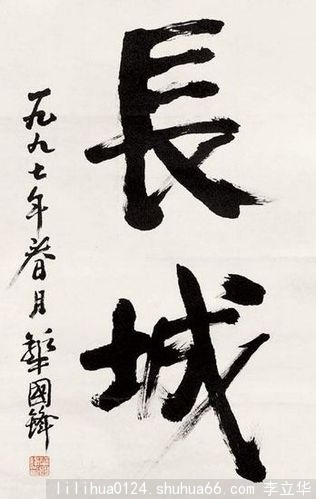 長城
一九九七年春月華國鋒
lilihua0124.shuhua66.com 李立华